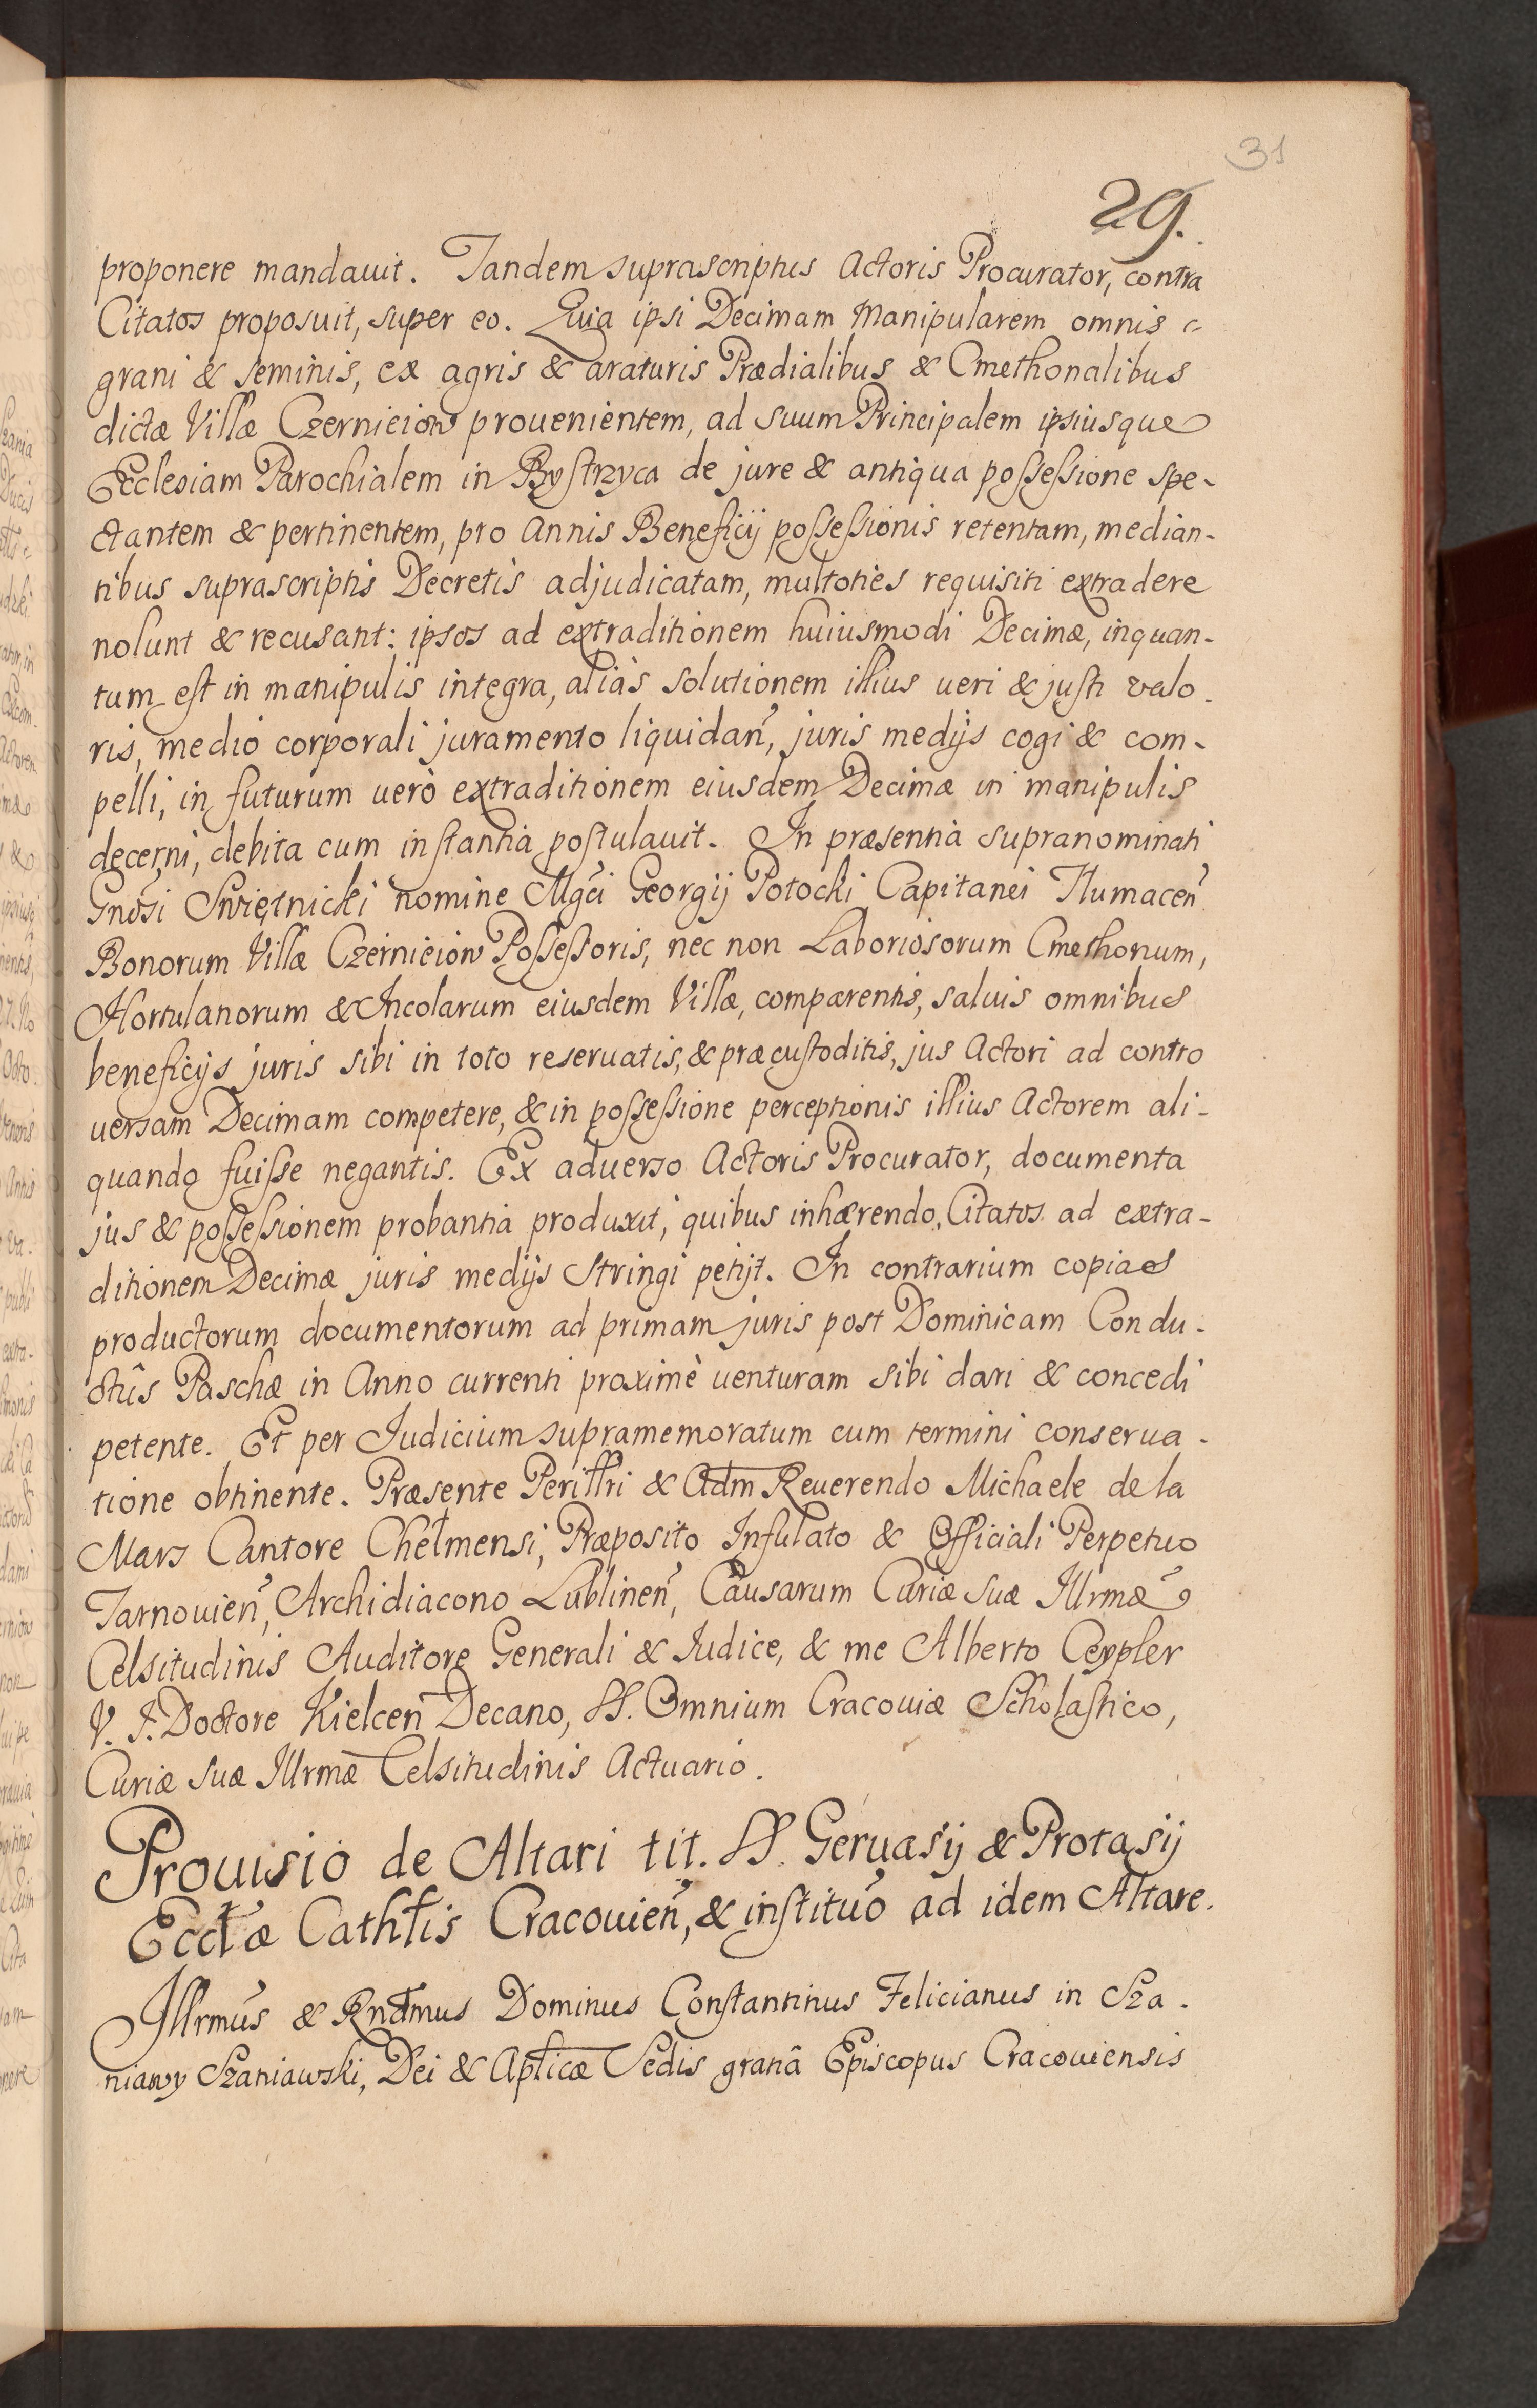 31
29.
proponere mandauit. Tandem suprascriptus Actoris Procurator, contra
Citatos proposuit, super eo. Quia ipsi Decimam Manipularem omnis
grani & seminis, ex agris & araturis Prædialibus & Cmethonalibus
dictæ Villæ Czernicion prouenientem, ad suum Principalem ipsiusque
Ecclesiam Parochialem in Bystrzyca de jure & antiqua possessione spe-
ctantem & pertinentem, pro Annis Beneficij possessionis retentam, median-
tibus suprascriptis Decretis adjudicatam, multoties requisiti extradere
nolunt & recusant: ipsos ad extraditionem huiusmodi Decimæ, inquan-
tum est in manipulis integra, aliàs solutionem illius ueri & justi valo-
ris, medio corporali juramento liquidañ, juris medijs cogi & com-
pelli, in futurum uerò extraditionem eiusdem Decimæ in manipulis
decerni, debita cum instantia postulauit. In præsentia supranominati
Gnosi Swiętnicki nomine Mgci Georgij Potocki Capitanei Tlumaceñ
Bonorum Villæ Czernicion Possessoris, nec non Laboriosorum Cmethonum,
Hortulanorum & Incolarum eiusdem Villæ, comparentis, saluis omnibus
beneficijs juris sibi in toto reseruatis, & præcustoditis, jus Actori ad contro
uersam Decimam competere, & in possessione perceptionis illius Actorem ali-
quando fuisse negantis. Ex aduerso Actoris Procurator, documenta
jus & possessionem probantia produxit, quibus inhærendo, Citatos ad extra-
ditionem Decimæ juris medijs stringi petijt. In contrarium copias
productorum documentorum ad primam juris post Dominicam Condu-
ctûs Paschæ in Anno currenti proximè uenturam sibi dari & concedi
petente. Et per Judicium supramemoratum cum termini conserua-
tione obtinente. Præsente Perillri & Adm Reuerendo Michaele de la
Mars Cantore Chełmensi, Præposito Infulato & Officiali Perpetuo
Tarnouieñ, Archidiacono Lublineñ, Causarum Curiæ suæ Illrmæ
Celsitudinis Auditore Generali & Judice, & me Alberto Ceypler
V. J. Doctore Kielceñ Decano, SS. Omnium Cracouiæ Scholastico,
Curiæ suæ Illrmæ Celsitudinis Actuario.
Prouisio de Altari tit. SS. Geruasij & Protasij
Eccłæ Cathłis Cracouieñ, & institutio ad idem Altare.
Illrmus & Rndmus Dominus Constantinus Felicianus in Sza-
niawy Szaniawski, Dei & Aplicæ Sedis gratia Episcopus Cracouiensis